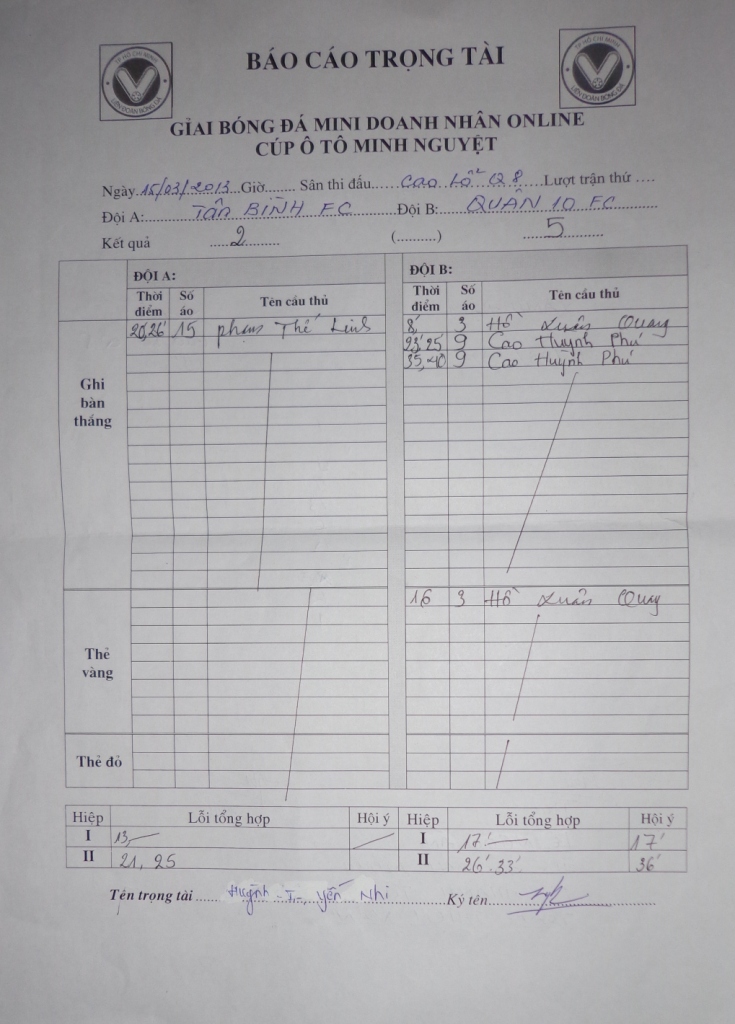 TP HỒ CHÍ MINH
LIÊN ĐOÀN BÓNG ĐÁ
BÁO CÁO TRỌNG TÀI
TP HỒ CHÍ MINH
LIÊN ĐOÀN BÓNG ĐÁ
GIẢI BÓNG ĐÁ MINI DOANH NHÂN ONLINE
CÚP Ô TÔ MINH NGUYỆT
Ngày 15/03/2013 Giờ........ Sân thi đấu..... Cao Lỗ Q8 .....Lượt trận thứ ....
Đội A: TÂN BÌNH FC Đội B: QUẬN 10 FC
Kết quả 2 (..........) 5
ĐỘI A: ĐỘI B:
Thời điểm Số áo Tên cầu thủ Thời điểm Số áo Tên cầu thủ
Ghi bàn thắng
20,26' 15 phạm Thế Linh 8' 3 Hồ Xuân Quang
23' 25' 9 Cao Huỳnh Phú
35, 40 9 Cao Huỳnh Phú
Thẻ vàng
16 3 Hồ Xuân Quang
Thẻ đỏ
Hiệp Lỗi tổng hợp Hội ý Hiệp Lỗi tổng hợp Hội ý
I 13, I 17' 17'
II 21, 25 II 26' 33' 36'
Tên trọng tài ...... Huỳnh T. Yến Nhi Ký tên